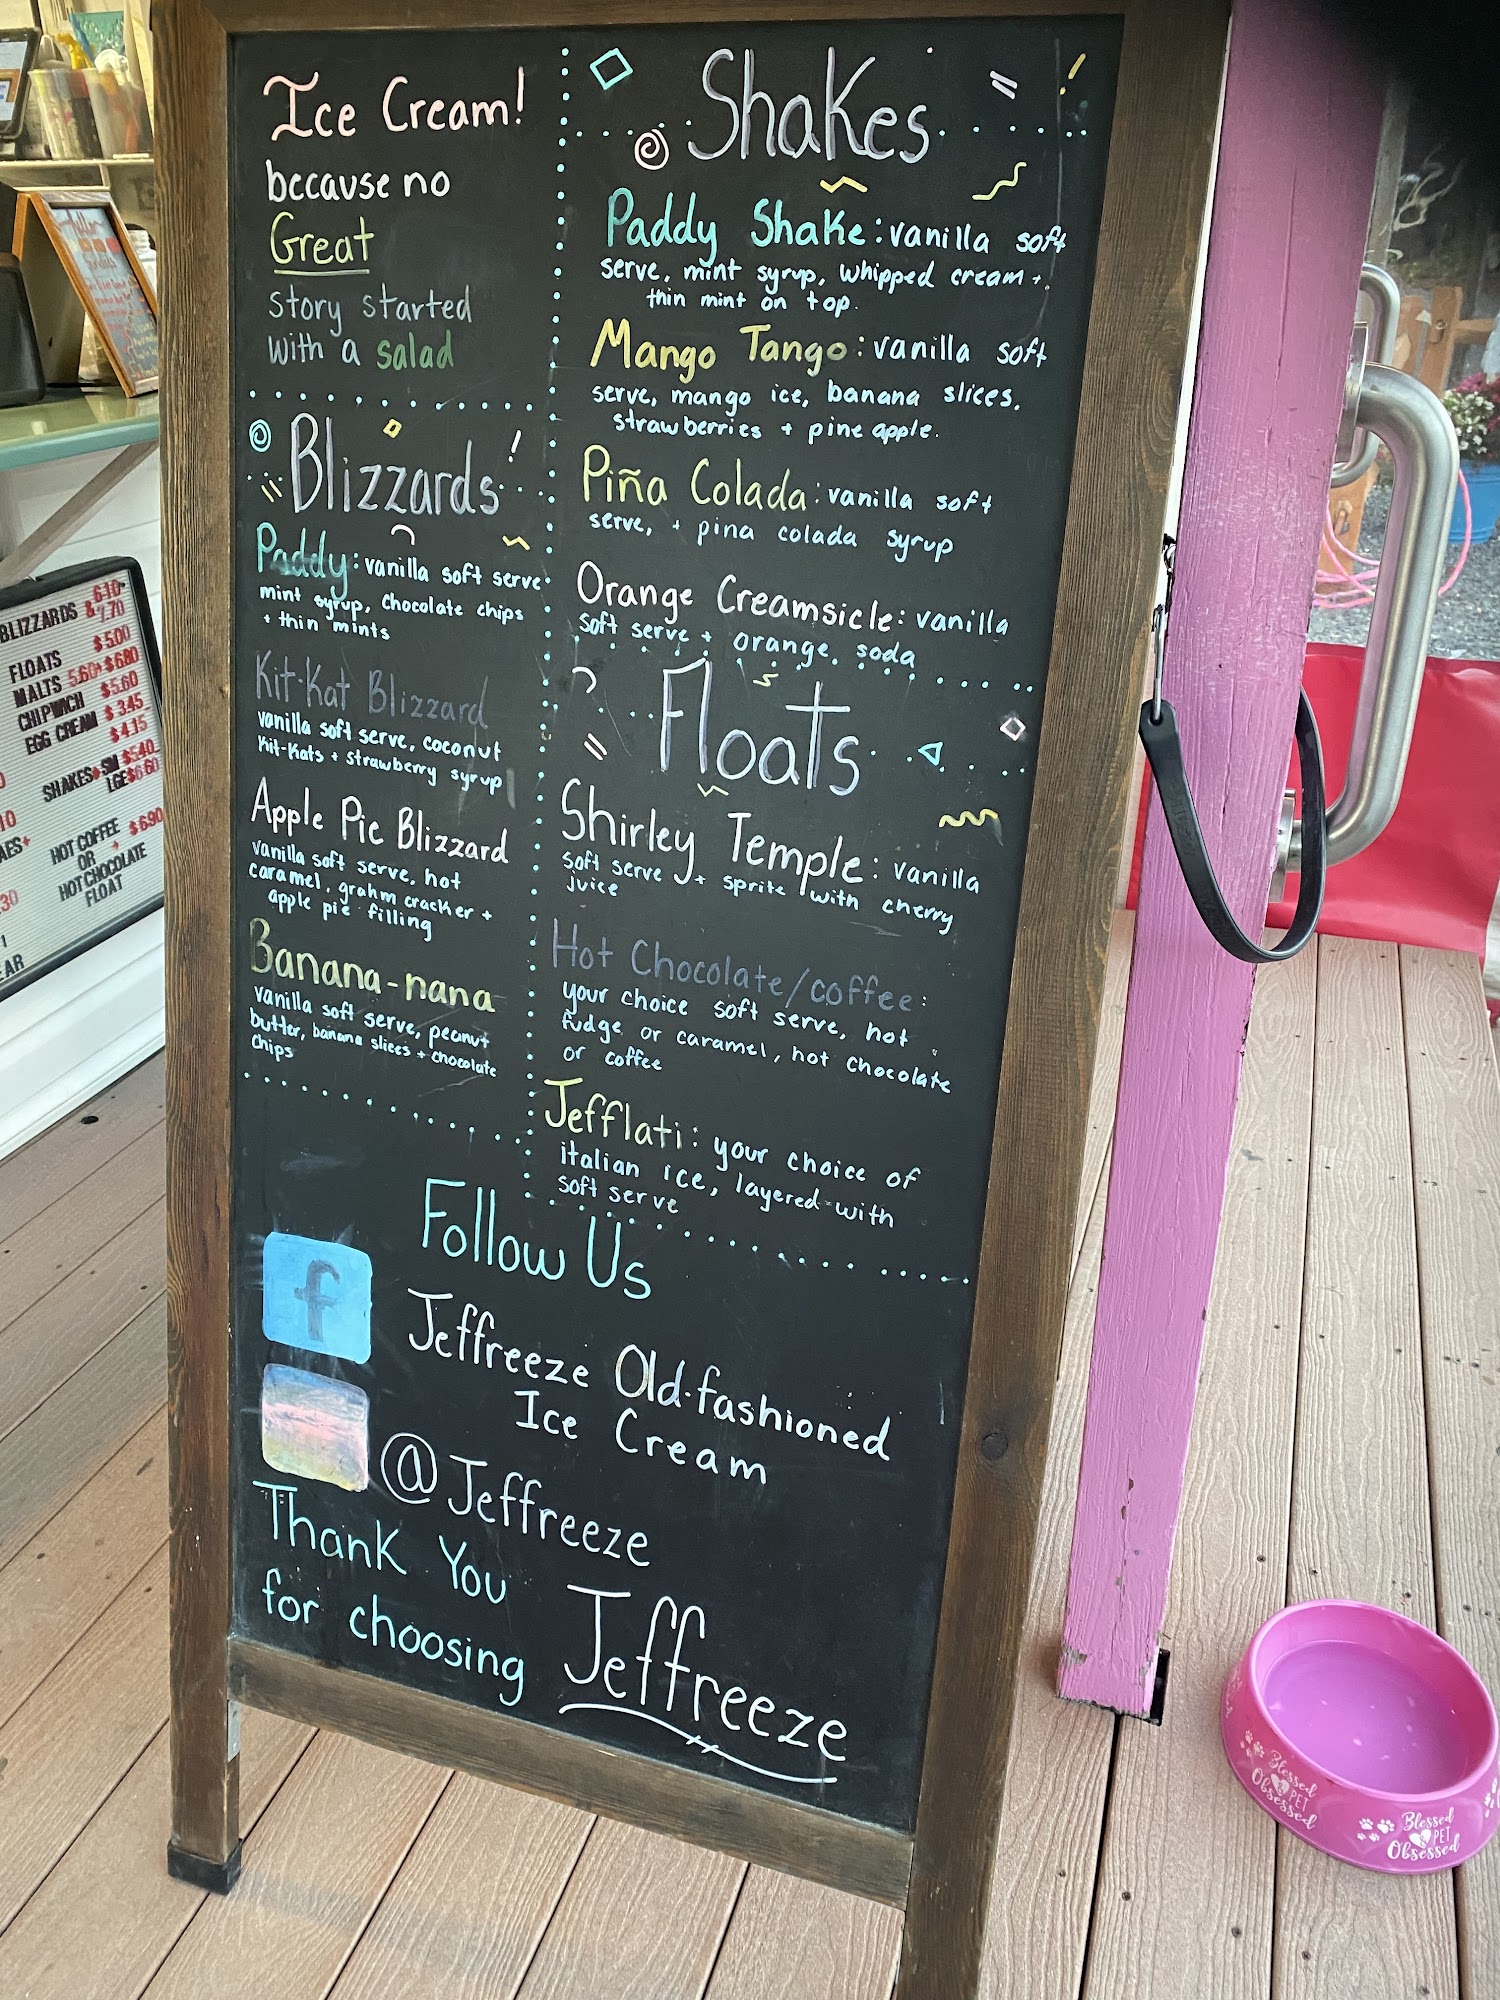 Ice Cream!
because no
Great
story started
with a salad
Blizzards
Paddy: vanilla soft serve
mint syrup, chocolate chips
+ thin mints
Kit-Kat Blizzard
vanilla soft serve, coconut
Kit-Kats + strawberry syrup
Apple Pie Blizzard
vanilla soft serve, hot
caramel, grahm cracker +
apple pie filling
Banana-nana
vanilla soft serve, peanut
butter, banana slices + chocolate
chips
Shakes
Paddy Shake: vanilla soft
serve, mint syrup, whipped cream +
thin mint on top.
Mango Tango: vanilla soft
serve, mango ice, banana slices,
strawberries + pineapple.
Piña Colada: vanilla soft
serve, + pina colada syrup
Orange Creamsicle: vanilla
soft serve + orange soda
Floats
Shirley Temple: vanilla
soft serve + sprite with cherry
juice
Hot Chocolate/coffee:
your choice soft serve, hot
fudge or caramel, hot chocolate
or coffee
Jefflati: your choice of
italian ice, layered with
soft serve
Follow Us
f
Jeffreeze Old-fashioned
Ice Cream
@Jeffreeze
Thank You
for choosing Jeffreeze
BLIZZARDS 6.10 & 7.70
FLOATS $5.00
MALTS 5.60+$6.80
CHIPWICH $5.60
EGG CREAM $3.45
$4.15
SHAKES SM $5.40
LGE $6.60
HOT COFFEE $6.90
OR
HOT CHOCOLATE
FLOAT
Blessed
PET
Obsessed
Blessed
PET
Obsessed